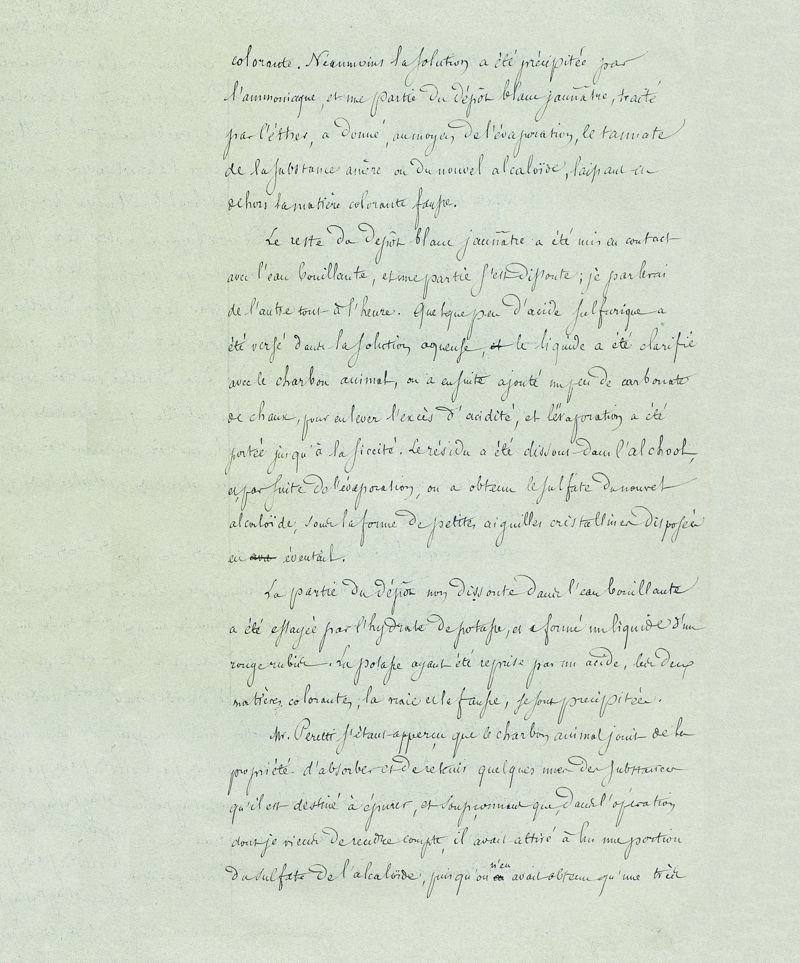 colorante. Néanmoins la solution a été précipitée par
l'ammoniaque, et une partie du dépôt blanc jaunâtre, traité
par l'éther, a donné, au moyen de l'évaporation, le tannate
de la substance amère ou du nouvel alcaloïde, laissant en
dehors la matière colorante fausse.
Le reste du dépôt blanc jaunâtre a été mis en contact
avec l'eau bouillante, et une partie s'est dissoute; je parlerai
de l'autre tout à l'heure. Quelque peu d'acide sulfurique a
été versé dans la solution aqueuse, et le liquide a été clarifié
avec le charbon animal, on a ensuite ajouté un peu de carbonate
de chaux, pour enlever l'excès d'acidité, et l'évaporation a été
portée jusqu'à la siccité. Le résidu a été dissous dans l'alchool,
et, par suite de l'évaporation, on a obtenu le sulfate du nouvel
alcaloïde, sous la forme de petites aiguilles cristallines disposées
en éventail.
La partie du dépôt non dissoute dans l'eau bouillante
a été essayée par l'hydrate de potasse, et a formé un liquide d'un
rouge rubis. La potasse ayant été reprise par un acide, les deux
matières colorantes, la vraie et la fausse, se sont précipitées.
Mr. Peretti s'étant apperçu que le charbon animal jouit de la
propriété d'absorber et de retenir quelques unes des substances
qu'il est destiné à épurer, et soupçonnant que, dans l'opération
dont je viens de rendre compte, il avait attiré à lui une portion
du sulfate de l'alcaloïde, puisqu'on n'en avait obtenu qu'une très